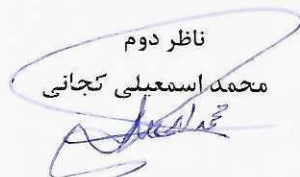 ناظر دوم
محمد اسمعیلی کجانی